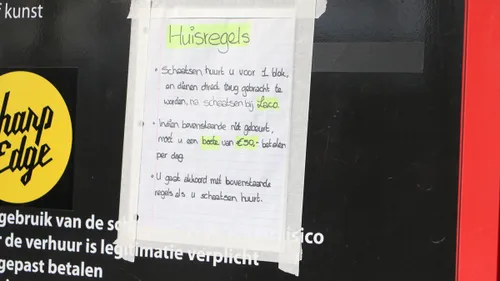 f kunst
Huisregels
• Schaatsen huurt u voor 1 blok,
en dienen direct terug gebracht te
worden na schaatsen bij Laco.
• Indien bovenstaande niet gebeurt,
moet u een boete van €50,- betalen
per dag.
• U gaat akkoord met bovenstaande
regels als u schaatsen huurt.
harp
Edge
gebruik van de sc isico
r de verhuur is legitimatie verplicht
gepast betalen